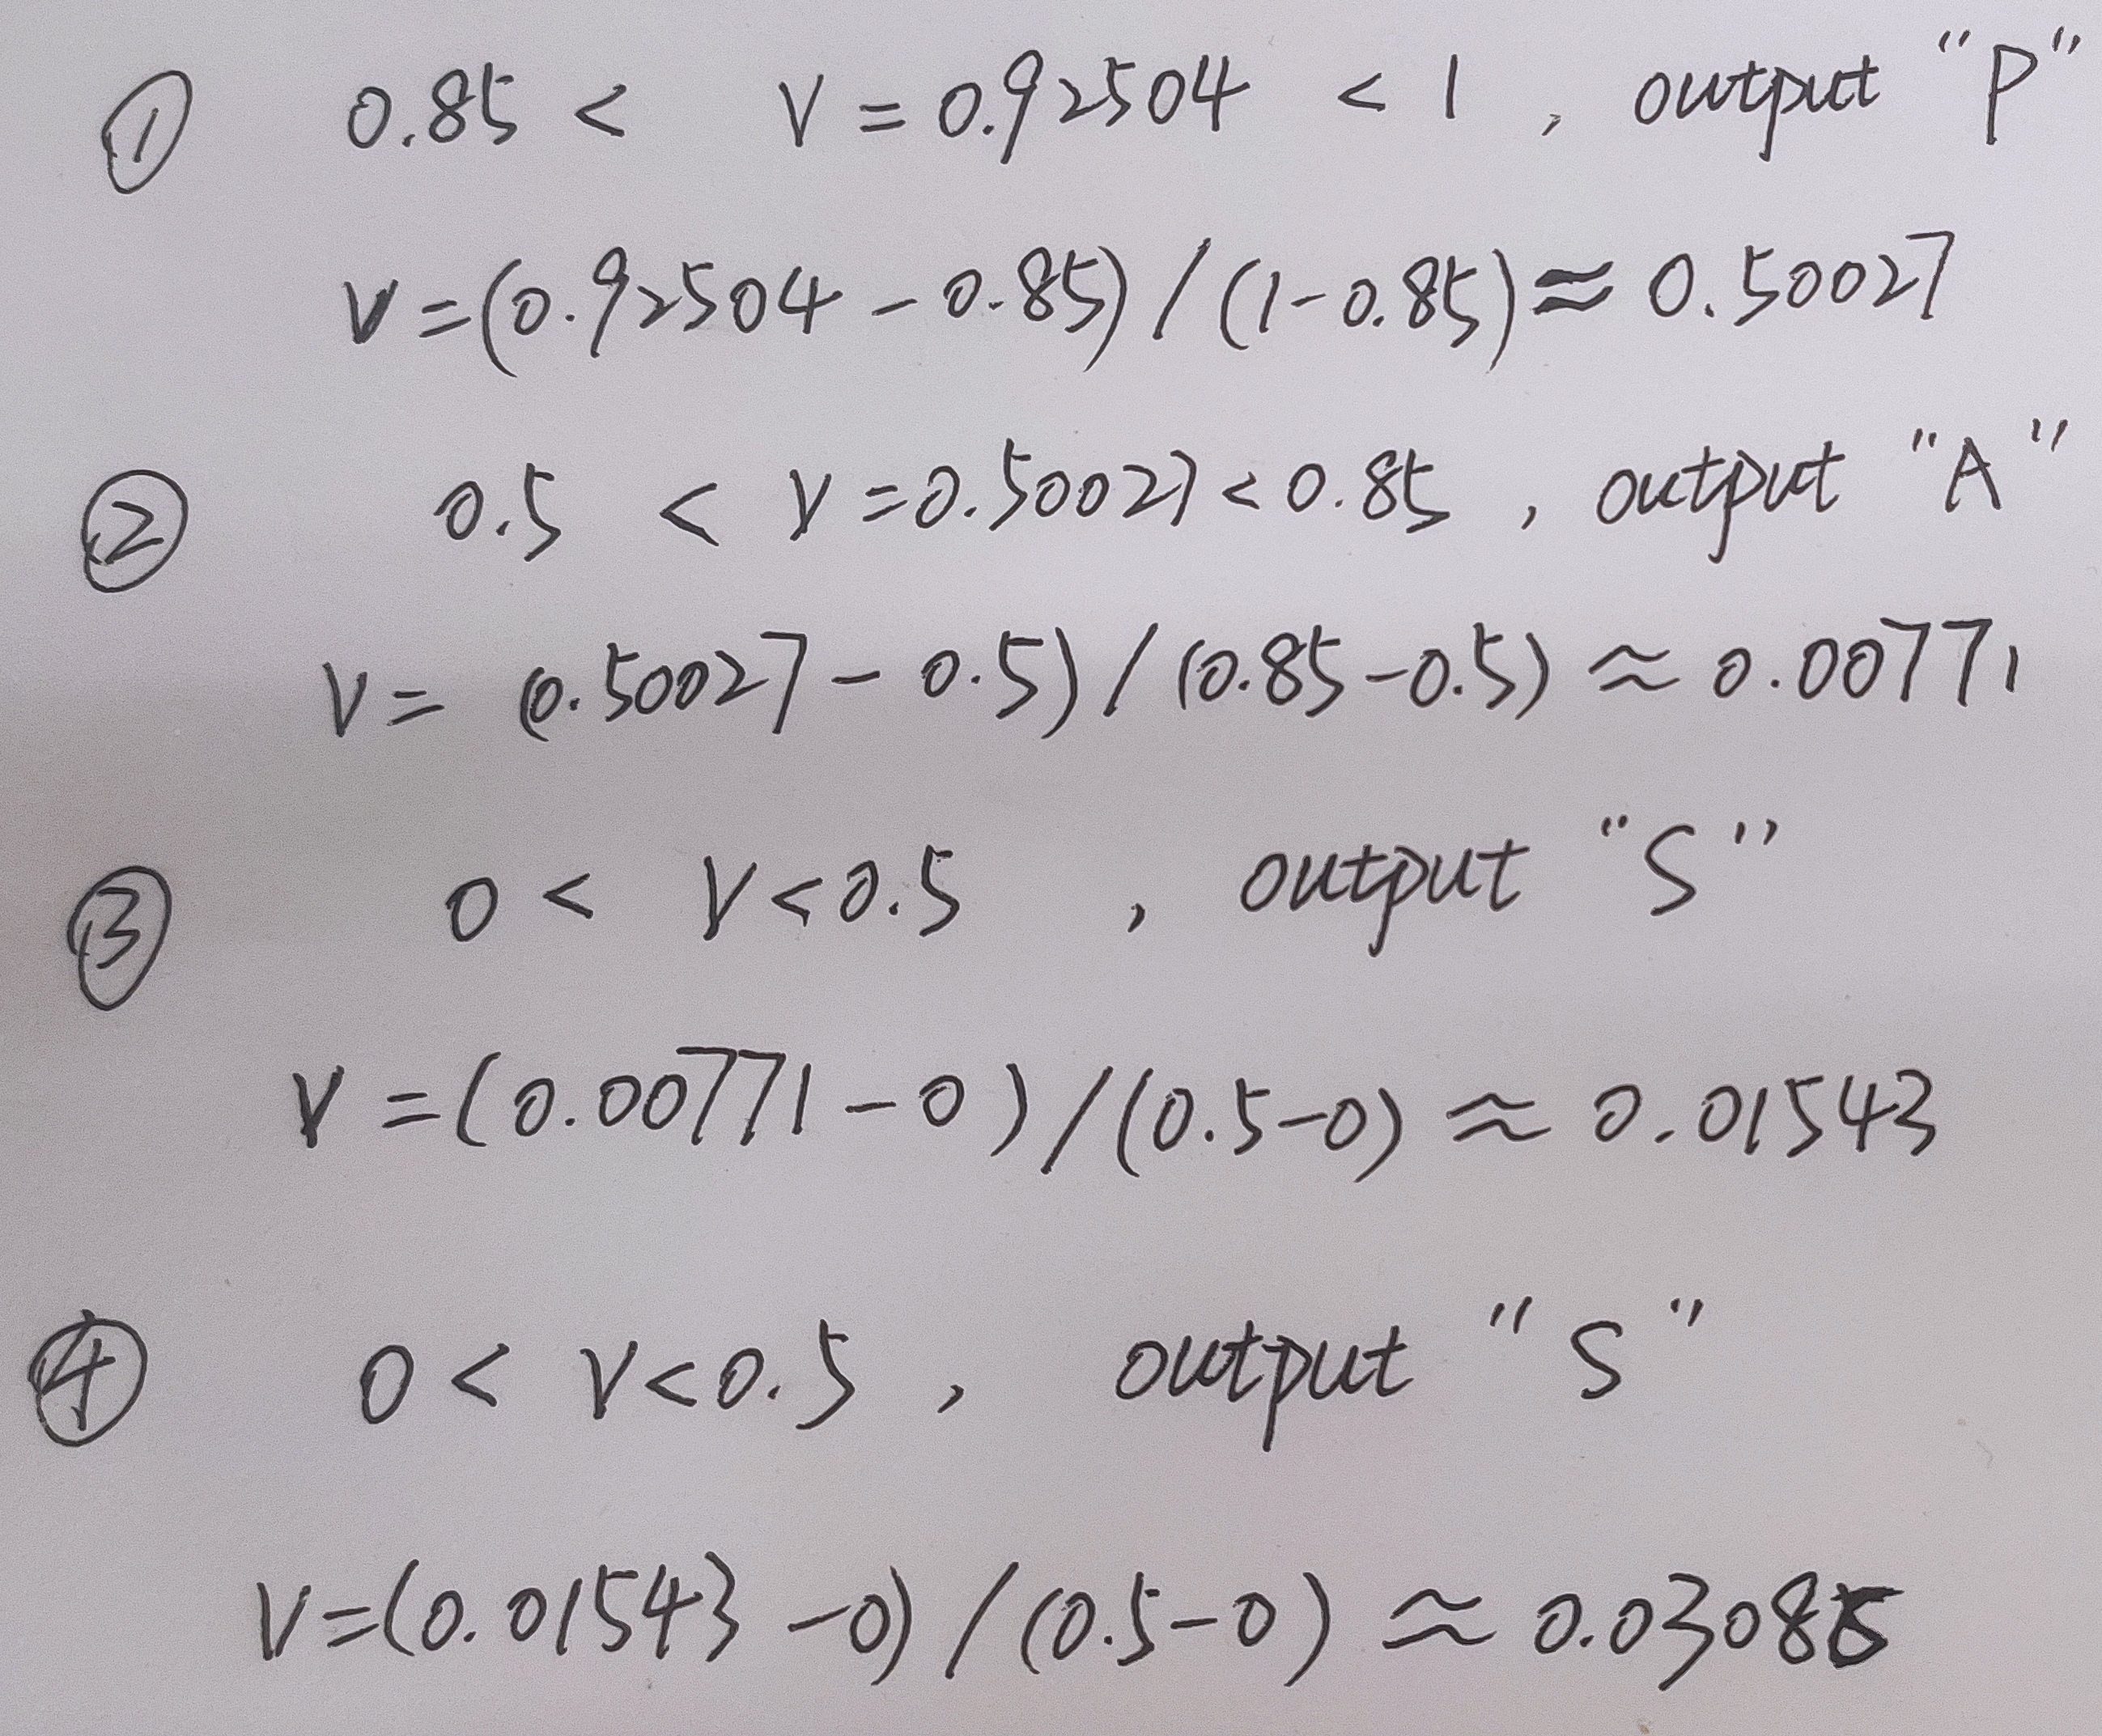 ① 0.85 < V = 0.92504 < 1 , output "P"
V = (0.92504 - 0.85) / (1 - 0.85) ≈ 0.50027
② 0.5 < V = 0.50027 < 0.85 , output "A"
V = (0.50027 - 0.5) / (0.85 - 0.5) ≈ 0.00771
③ 0 < V < 0.5 , output "S"
V = (0.00771 - 0) / (0.5 - 0) ≈ 0.01543
④ 0 < V < 0.5 , output "S"
V = (0.01543 - 0) / (0.5 - 0) ≈ 0.03086